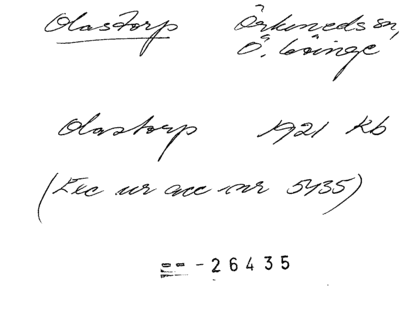 Olastorp Örkeneds sn,
Ö. Göinge
Olastorp 1921 Kb
(Exc ur acc nr 5435)
-26435